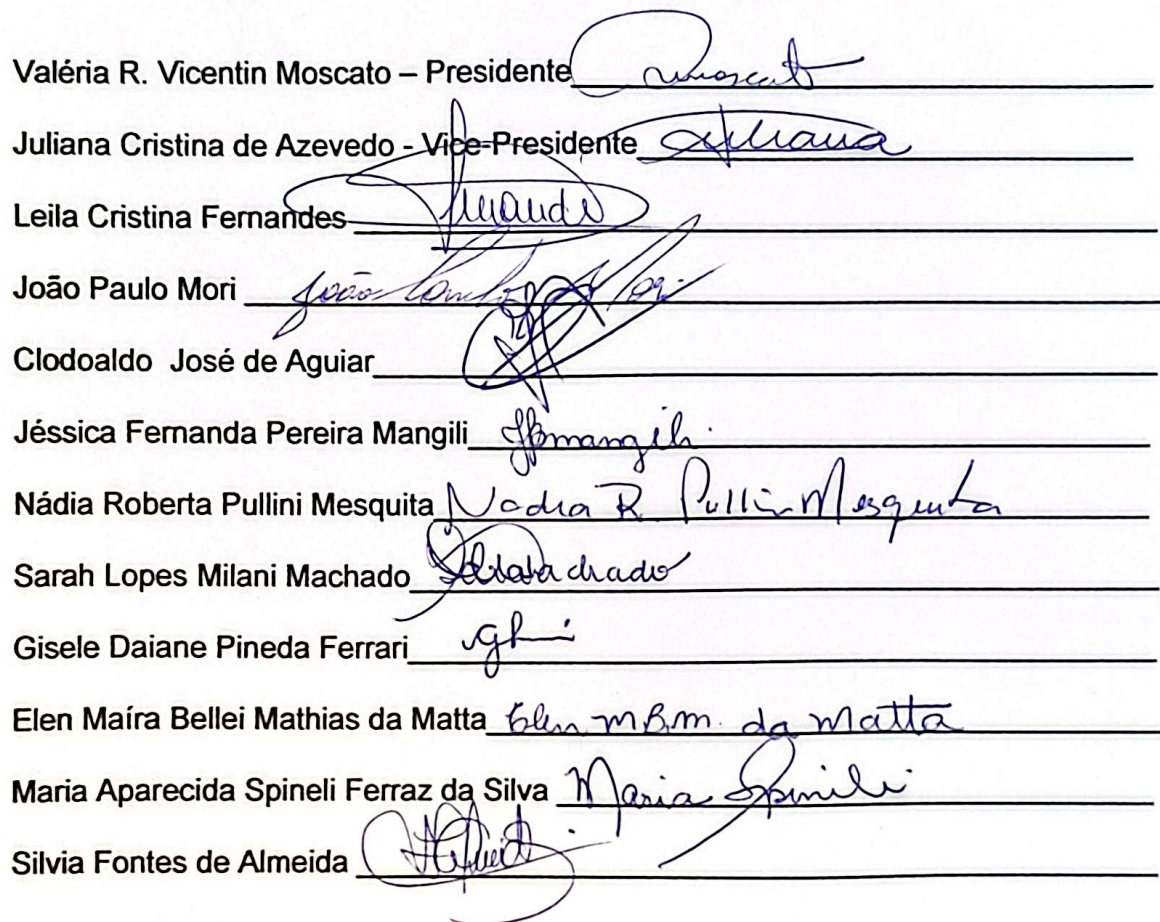 Valéria R. Vicentin Moscato – Presidente Vmoscato
Juliana Cristina de Azevedo - Vice-Presidente Juliana
Leila Cristina Fernandes
João Paulo Mori João Paulo Mori
Clodoaldo José de Aguiar
Jéssica Fernanda Pereira Mangili JFPmangili
Nádia Roberta Pullini Mesquita Nadia R Pullini Mesquita
Sarah Lopes Milani Machado
Gisele Daiane Pineda Ferrari
Elen Maíra Bellei Mathias da Matta Elen M.B.M. da Matta
Maria Aparecida Spineli Ferraz da Silva Maria Spineli
Silvia Fontes de Almeida